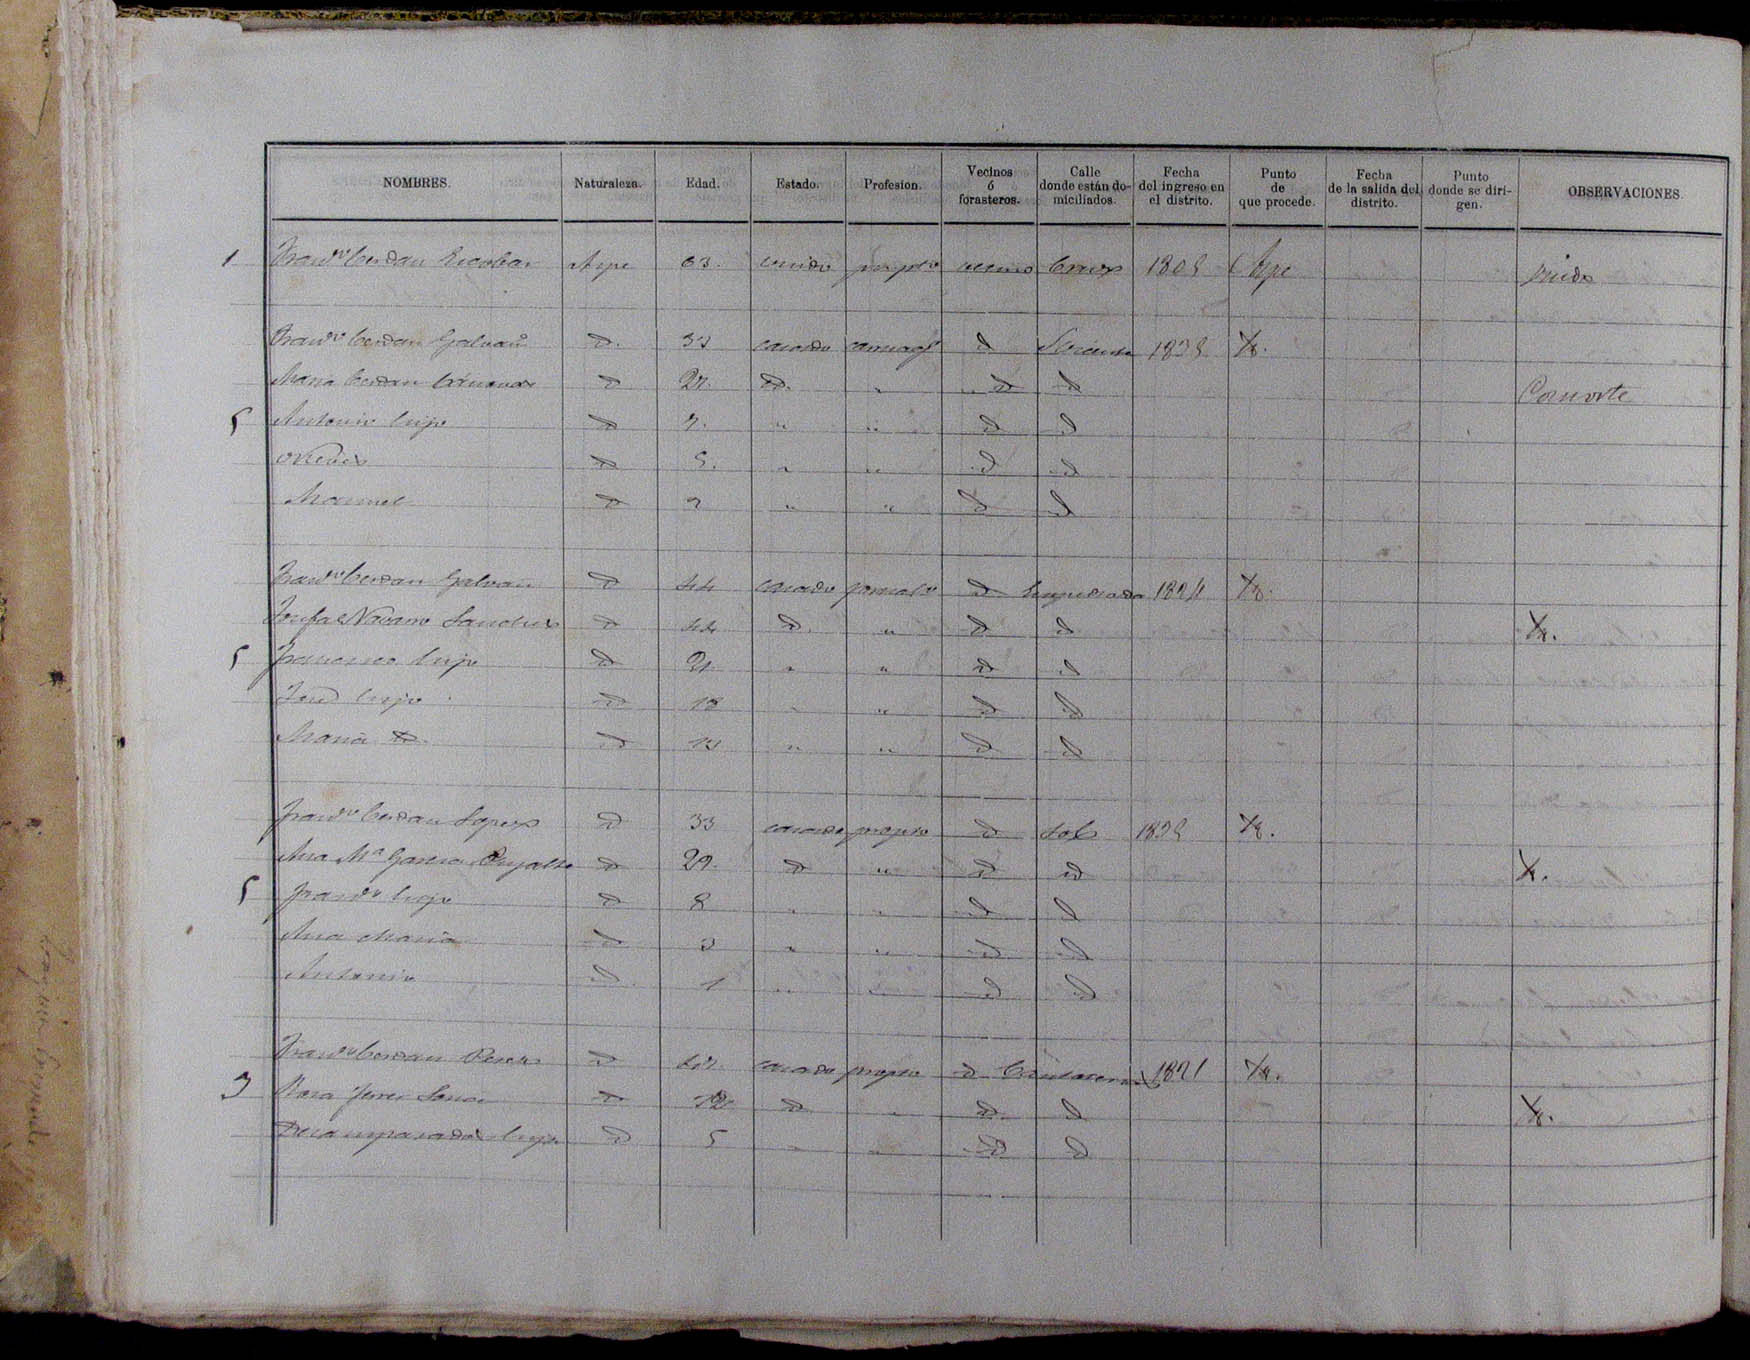 NOMBRES. Naturaleza. Edad. Estado. Profesion. Vecinos ó forasteros. Calle donde están domiciliados. Fecha del ingreso en el distrito. Punto de que procede. Fecha de la salida del distrito. Punto donde se dirigen. OBSERVACIONES.
1 Franco Cerdan Escobar Aspe 63. viudo propio vecino Cruz 1808 Aspe viudo
Franco Cerdan Galvañ id. 33 casado id 1838 id.
Maria Cerdan id 27. id. " id id Consorte
5 Antonio hijo id 7. " " id id
id 5. " " id id
Manuel id 2 " " id id
Franco Cerdan Galvan id 44 casado jornalo id Empedrada 1824 id.
Josefa Navarro Sanchez id 44 id. " id id id.
5 Francisco hijo id 21 " " id id
José hijo id 18 " " id id
Maria id. id 14 " " id id
Franco Cerdan Lopez id 33 casado propio id Sol 1838 id.
Ana Ma Garcia Pujalte id 29. id " id id id.
5 Franco hijo id 8 " " id id
Ana Maria id 3 " " id id
Antonio id. 1 " " id id
Franco Cerdan Perez id casado propio id 1821 id.
3 Rosa id id " id. id id.
Desamparados hija id 5 " " id id